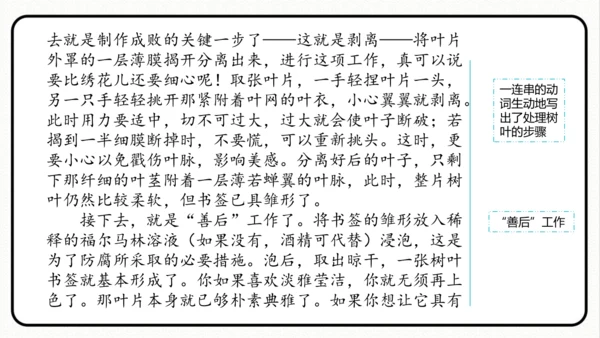 去就是制作成败的关键一步了——这就是剥离——将叶片
外罩的一层薄膜揭开分离出来，进行这项工作，真可以说
要比绣花儿还要细心呢！取张叶片，一手轻捏叶片一头，
另一只手轻轻挑开那紧附着叶网的叶衣，小心翼翼就剥离。
此时用力要适中，切不可过大，过大就会使叶子断破；若
揭到一半细膜断掉时，不要慌，可以重新挑头。这时，更
要小心以免戳伤叶脉，影响美感。分离好后的叶子，只剩
下那纤细的叶茎附着一层薄若蝉翼的叶脉，此时，整片树
叶仍然比较柔软，但书签已具雏形了。
接下去，就是“善后”工作了。将书签的雏形放入稀
释的福尔马林溶液（如果没有，酒精可代替）浸泡，这是
为了防腐所采取的必要措施。泡后，取出晾干，一张树叶
书签就基本形成了。你如果喜欢淡雅莹洁，你就无须再上
色了。那叶片本身就已够朴素典雅了。如果你想让它具有
一连串的动
词生动地写
出了处理树
叶的步骤
“善后”工作